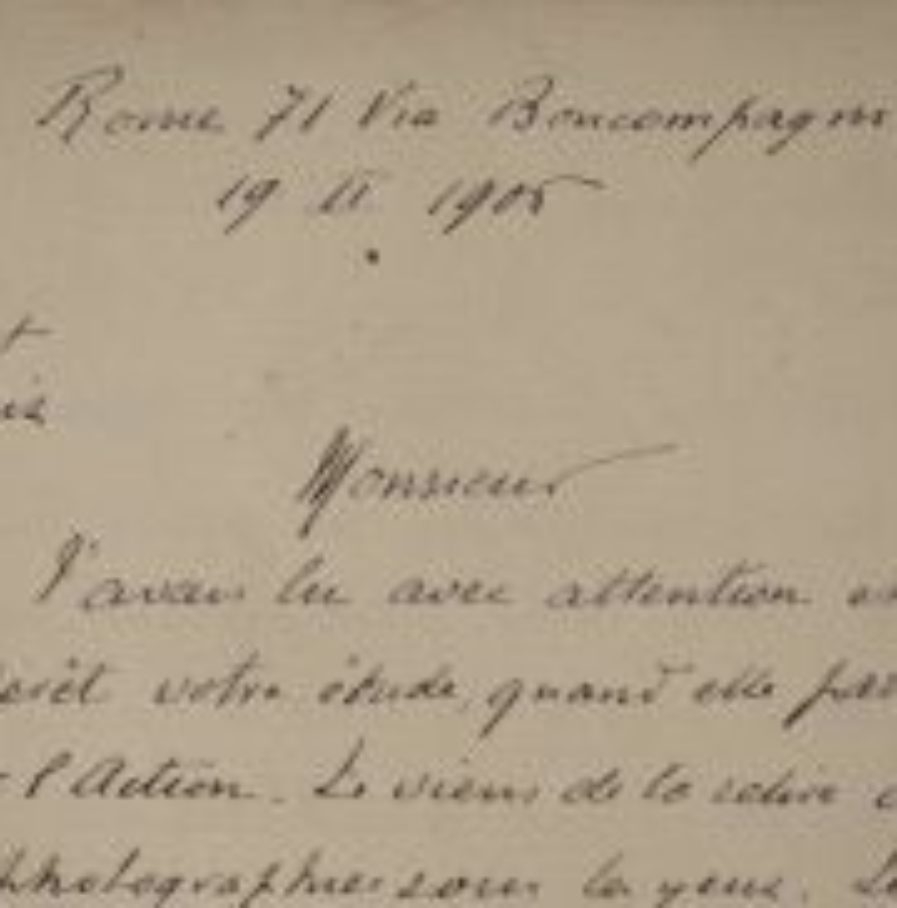 Rome 71 Via Boncompagni
19 II 1905
t
Monsieur
J'avais lu avec attention
votre étude, quand elle
l'Action. Je viens de la relire
photographies sous les yeux.